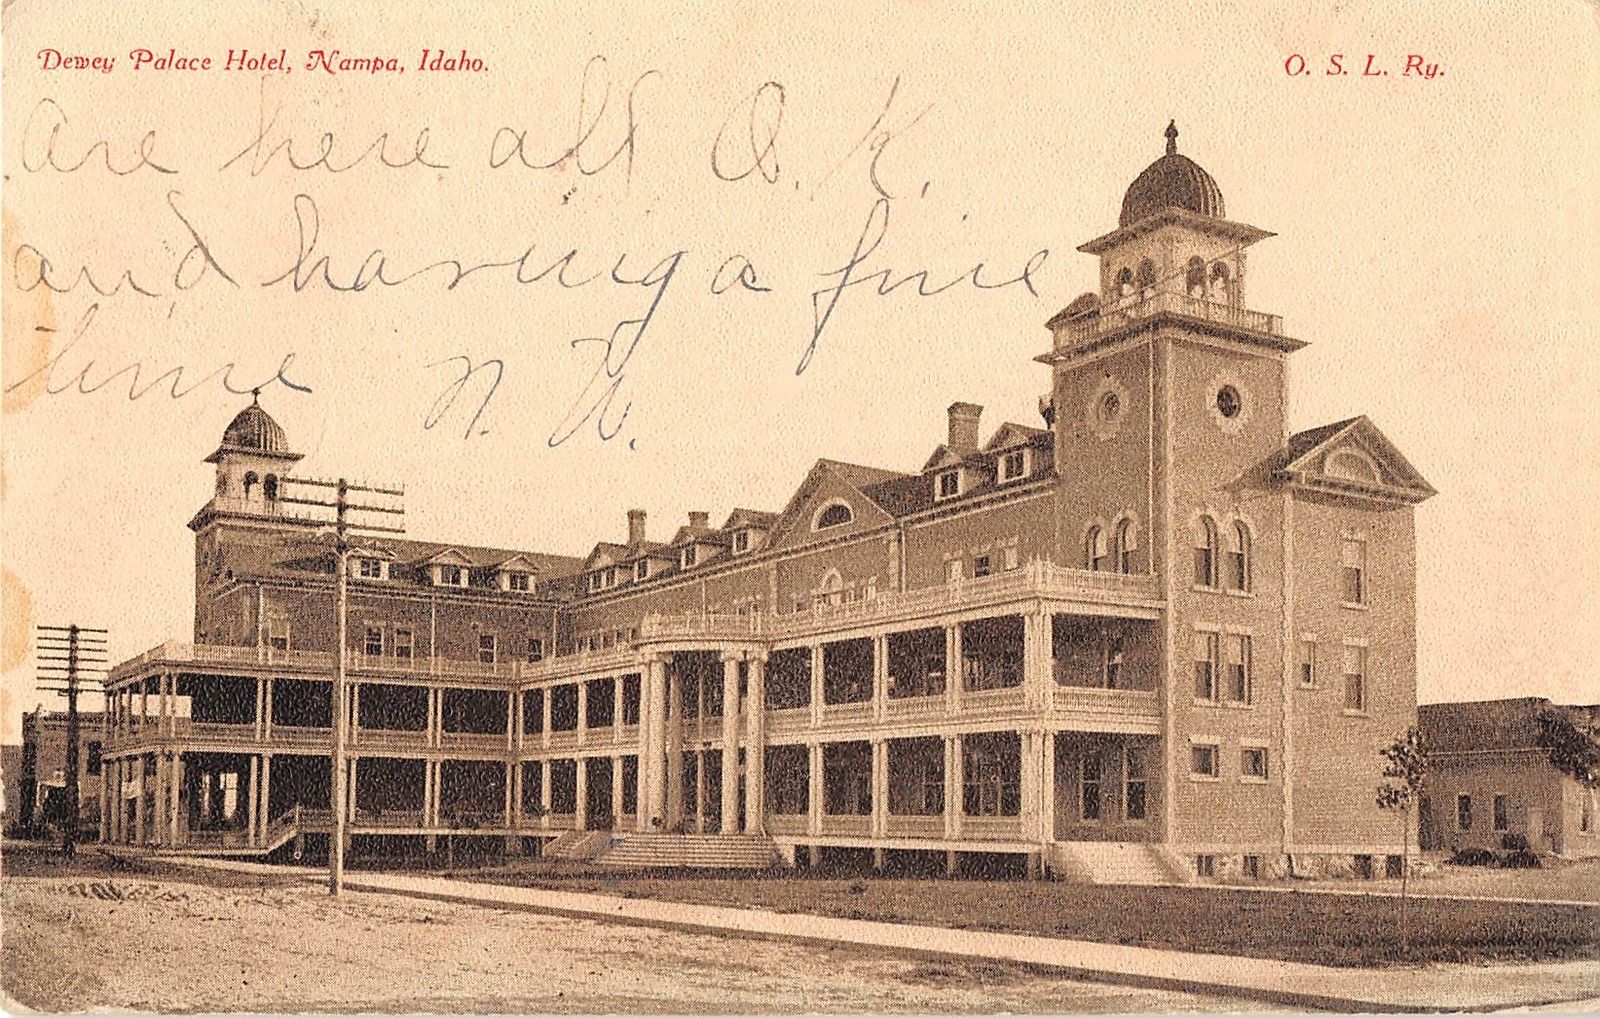 Dewey Palace Hotel, Nampa, Idaho.
O. S. L. Ry.
are here all O. K.
and having a fine
time N. W.